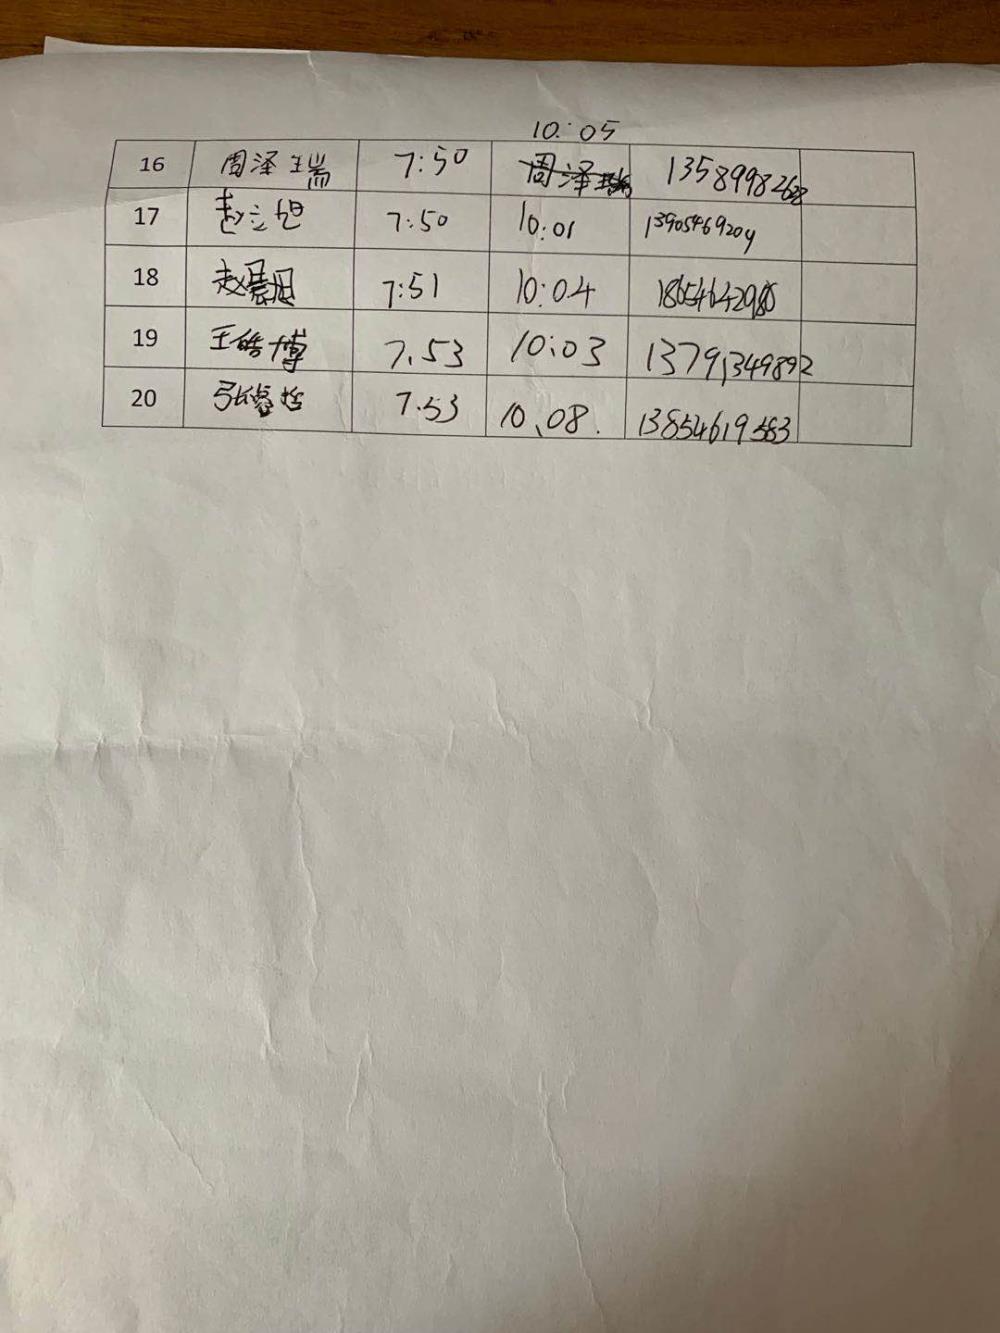 10:05
16 周泽瑞 7:50 周泽瑞 13589982628
17 赵立旭 7:50 10:01 13905469204
18 赵晨旭 7:51 10:04 18654642980
19 王皓博 7.53 10:03 13791349892
20 张睿哲 7.53 10.08. 13854619583